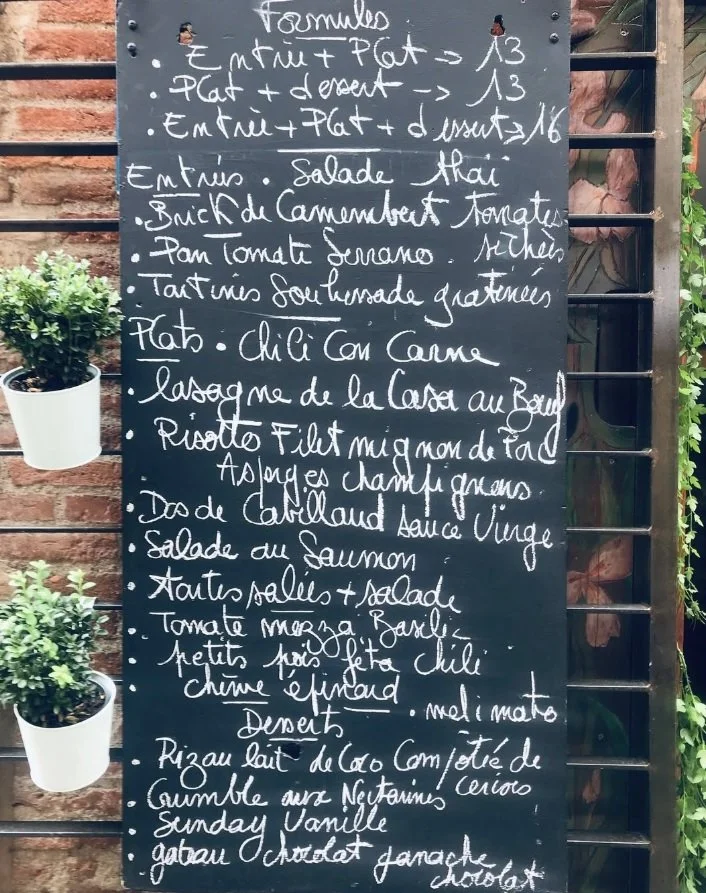 Formules
. Entrée + Plat => 13
. Plat + dessert -> 13
. Entrée + Plat + dessert => 16
Entrées . Salade thai
. Brick de Camembert tomates
séchées
. Pan Tomate Serrano.
. Tartines gratinées
Plats . Chili Con Carne
. lasagne de la Casa au Bœuf
. Risotto Filet mignon de Porc
Asperges champignons
. Dos de Cabillaud sauce Vierge
. Salade au Saumon
. tartes salées + salade
. Tomate mozza Basilic
. petits pois féta chili
. chèvre épinard . meli mato
Desserts
. Riz au lait de Coco Compotée de
cerises
. Crumble aux Nectarines
. Sunday Vanille
. gateau chocolat ganache
chocolat